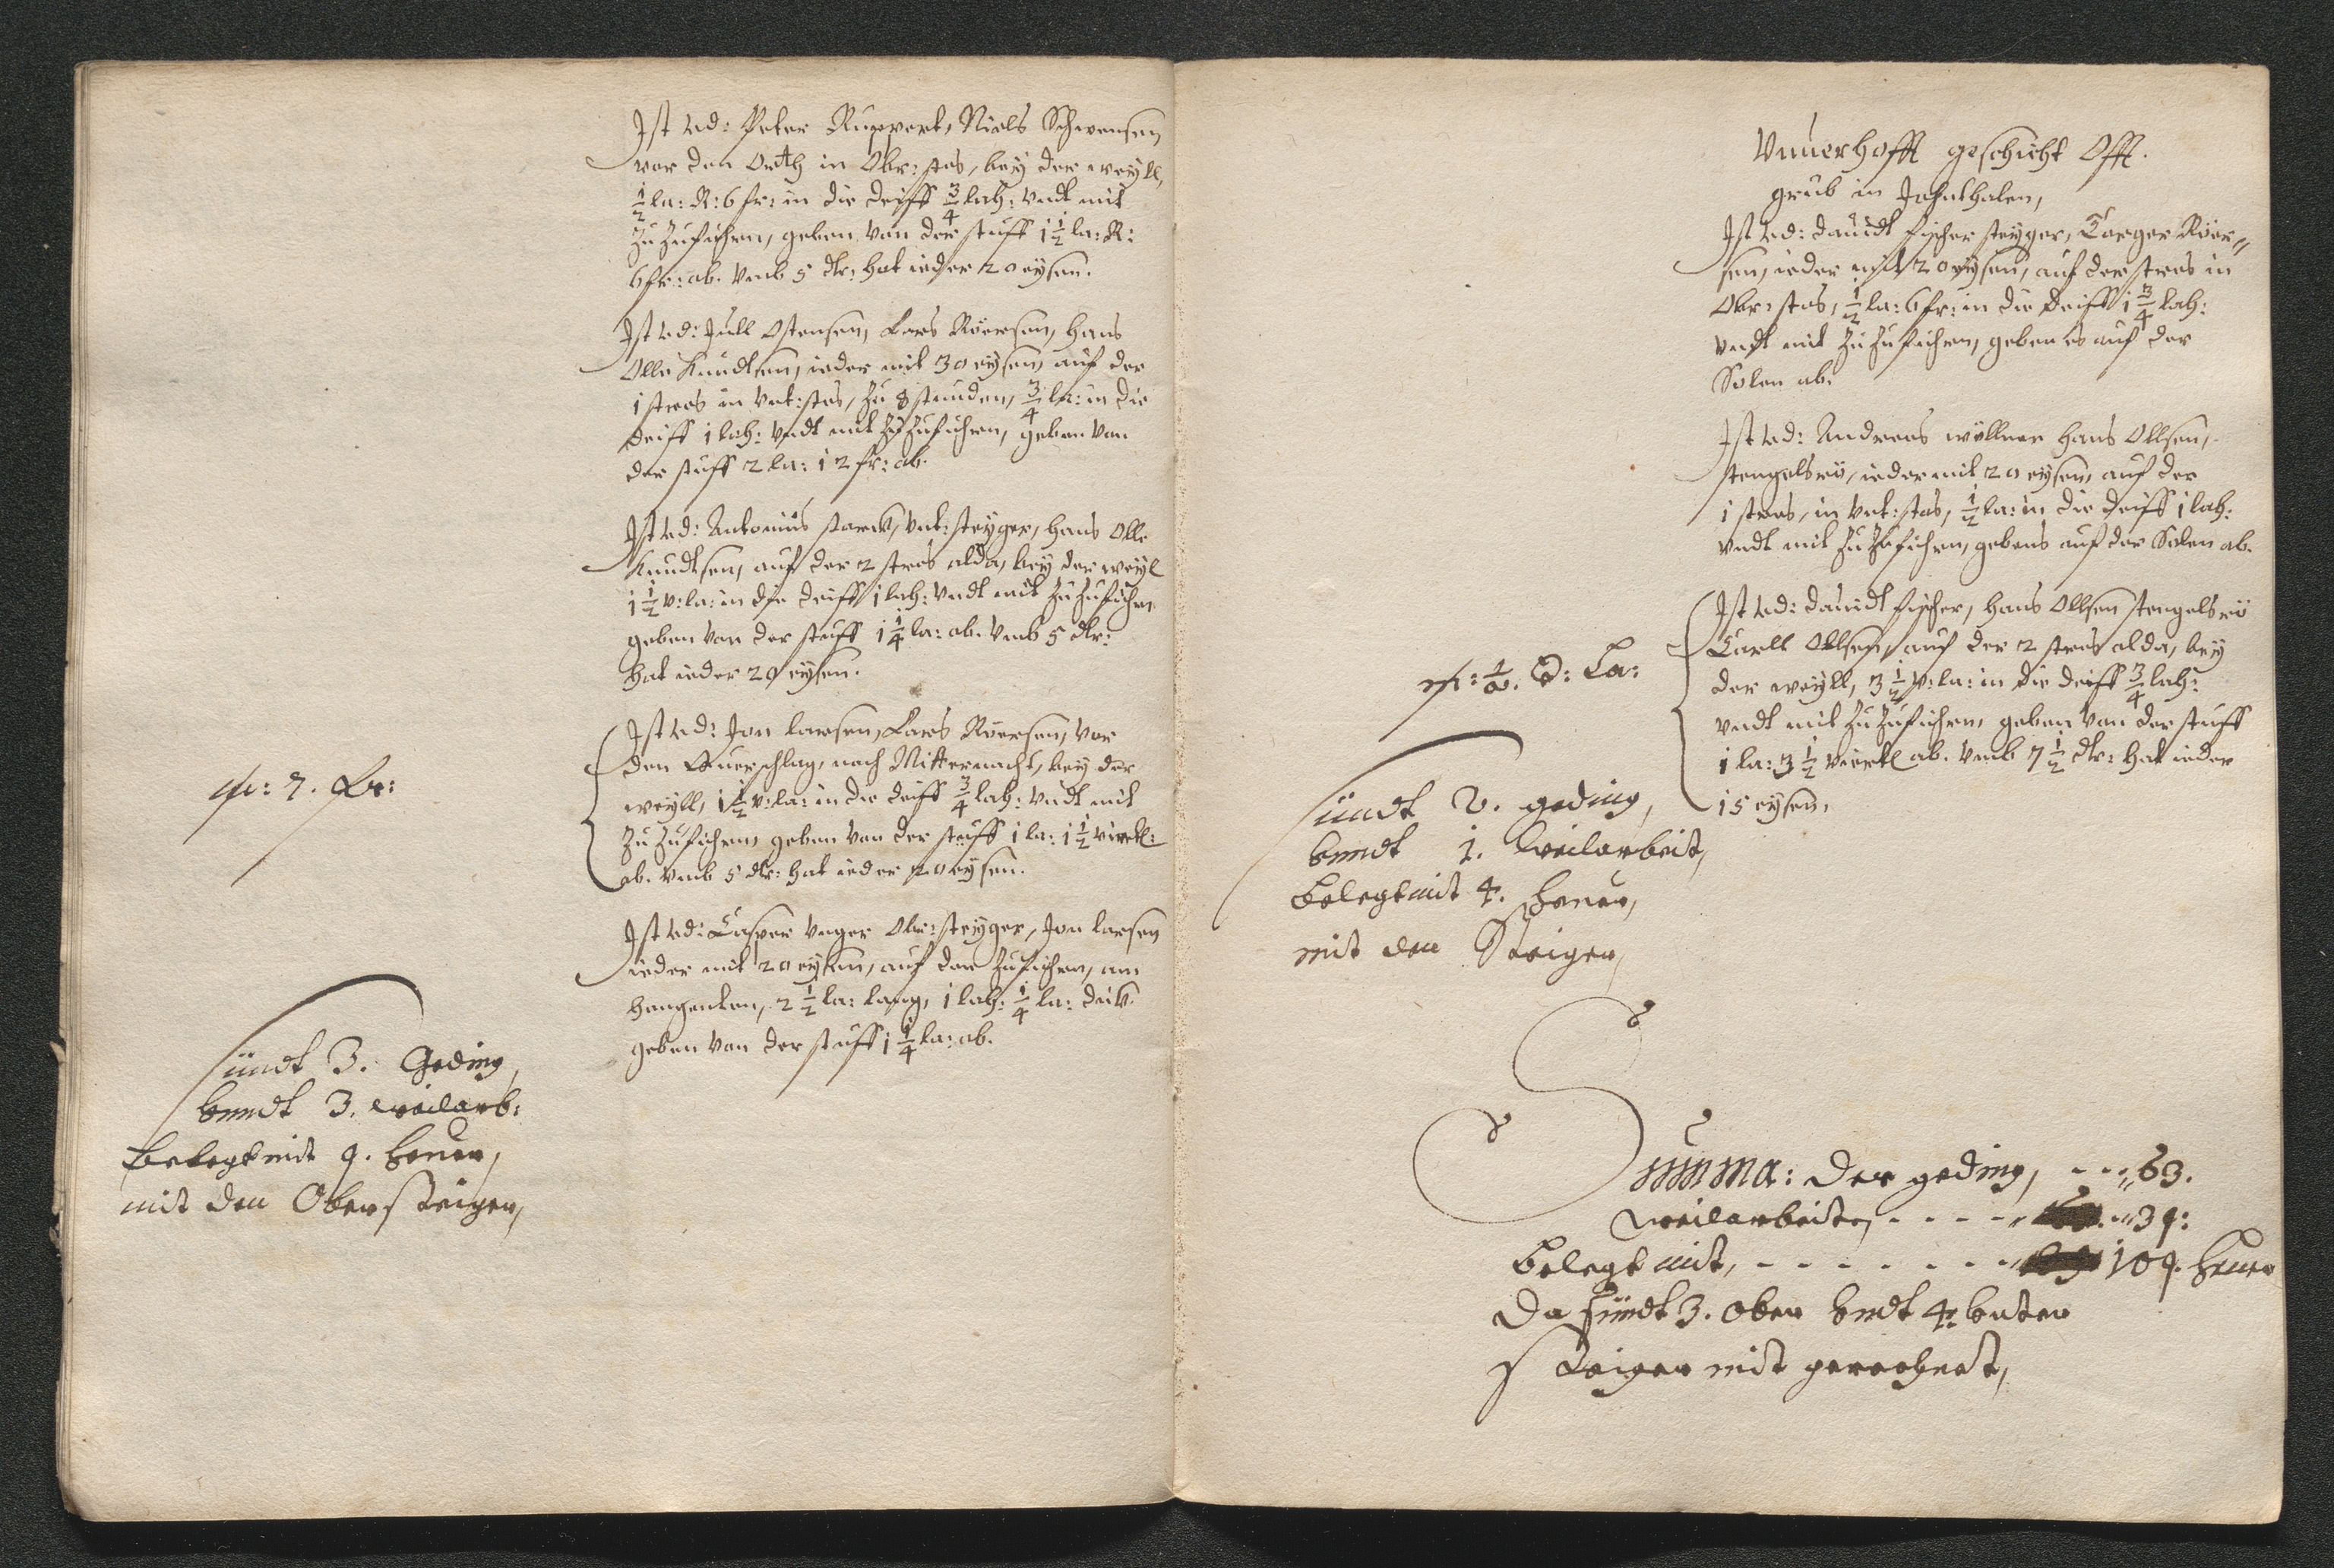 Ist Ad: Peter Ruppert, Niels Schwensen
vor den Orth in Obr: stos, bey der weyll,
1/2 la: R: 6 fr: in die deiff 3/4 lah: vndt mit
Zu Zufuhren, geben von der stuff 1 1/2 la: R:
6 fr: ab. vmb 5 dlr: hat ieder 20 eysen.
Ist Ad: Jull Ostensen, Lars Röersen, Hans
Olle Knudtsen, ieder mit 30 eysen, auf der
1 stros in vnt: stos, Zu 8 stunden, 3/4 la: in die
deiff 1 lah: vndt mit Zu Zufuhren, geben von
der stuff 2 la: 12 fr: ab.
Ist Ad: Antonius starck, vnt: steyger, Hans Olle
Knudtsen, auf der 2 stros alda, bey der weyl
1 1/2 v: la: in die deiff 1 lah: vndt mit Zu Zufuhrn
geben von der stuff 1 1/4 la: ab. vmb 5 dlr:
hat ieder 20 eysen.
Ist Ad: Jon larsen, Lars Röersen, vor
den Querschlag, nach Mitternacht, bey der
weyll, 1 1/2 v: la: in die deiff 3/4 lah: vndt mit
Zu Zufuhren, geben von der stuff 1 la: 1 1/2 viertl:
ab. vmb 5 dlr: hat ieder 20 eysen.
7. fr:
Ist Ad: Casper vnger Obr: steyger, Jon larsen
ieder mit 20 eysen, auf der Zufuhren, am
hangenten, 2 1/2 la: lang, 1 lah: 1/4 la: dick.
geben von der stuff 1 1/4 la: ab.
sündt 3. Geding,
vnndt 3. weilarb:
belegt mit 9. heuer,
mit den Obersteiger,
Vnuerhofft geschicht Offt.
grub in Jahnthalen,
Ist Ad: dauidt fischer steyger, Torger Röer=
sen, ieder mit 20 eysen, auf der stros in
Obr: stos, 1/2 la: 6 fr: in die deiff 1 3/4 lah:
vndt mit Zu Zufuhren, geben es auf der
Solen ab.
Ist Ad: Andreas wöllner Hans Ollsen,
stengelsrö, ieder mit 20 eysen, auf der
1 stros, in vnt: stos, 1/2 la: in die deiff 1 lah:
vndt mit Zu Zufuhren, gebens auf der Solen ab.
Ist Ad: dauidt fischer, Hans Ollsen stengelsrö
Carll Ollsen, auf der 2 stros alda, bey
der weyll, 3 1/2 v: la: in die deiff 3/4 lah:
vndt mit Zu Zufuhren, geben von der stuff
1 la: 3 1/2 viertl ab. vmb 7 1/2 dlr: hat ieder
15 eysen,
La:
sündt 2. geding,
vnndt 1. weilarbeit,
belegt mit 4. heuer,
mit den Steiger,
Summa: der geding, - - - 63.
weilarbeiten - - - - 39:
belegt mit, - - - - - - - 109. heuer
Da sündt 3. ober vndt 4. vnter
steiger mit gerechnet,